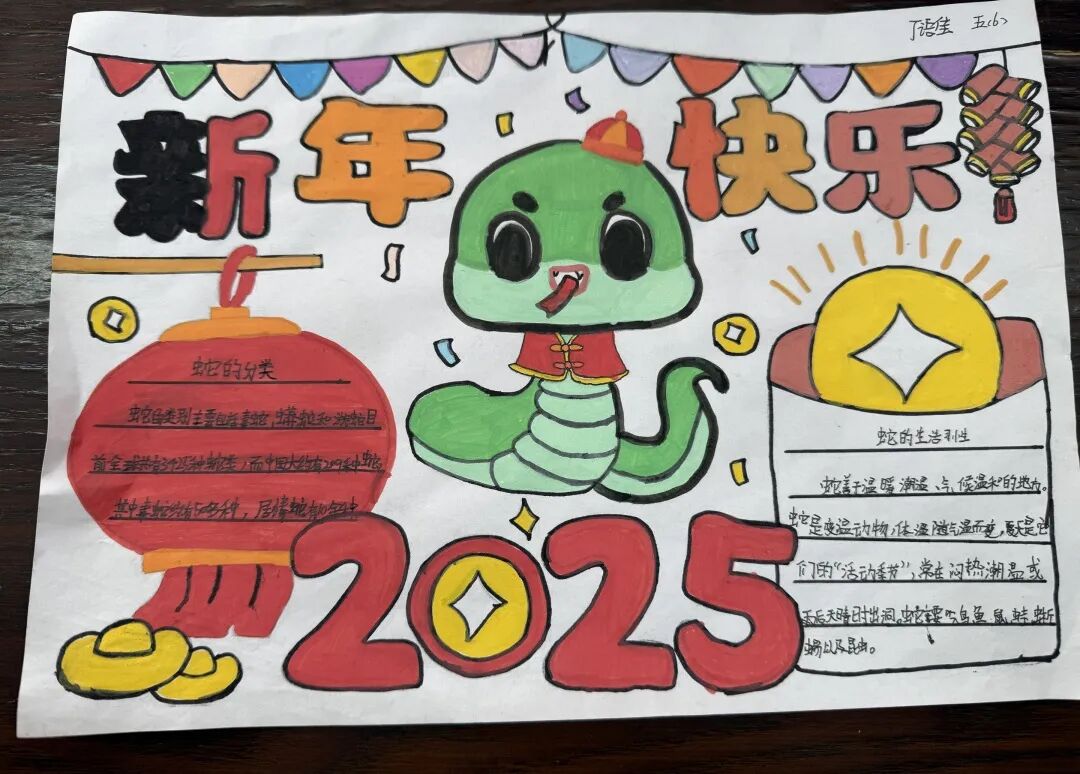 丁语佳 五(6)
新年快乐
蛇的分类
蛇目类别主要包括毒蛇,蟒蛇和游蛇目
前全球共有3千多种蛇类,而中国大约有209种蛇。
其中毒蛇约有50多种,
蛇的生活习性
蛇喜于温暖潮湿、气候温和的地方。
蛇是变温动物,体温随气温而变,夏天是它
们的“活动季节”,常在闷热潮湿或
雨后天晴时出洞。蛇主要吃鸟鱼鼠蛙蜥
蜴以及昆虫。
2025